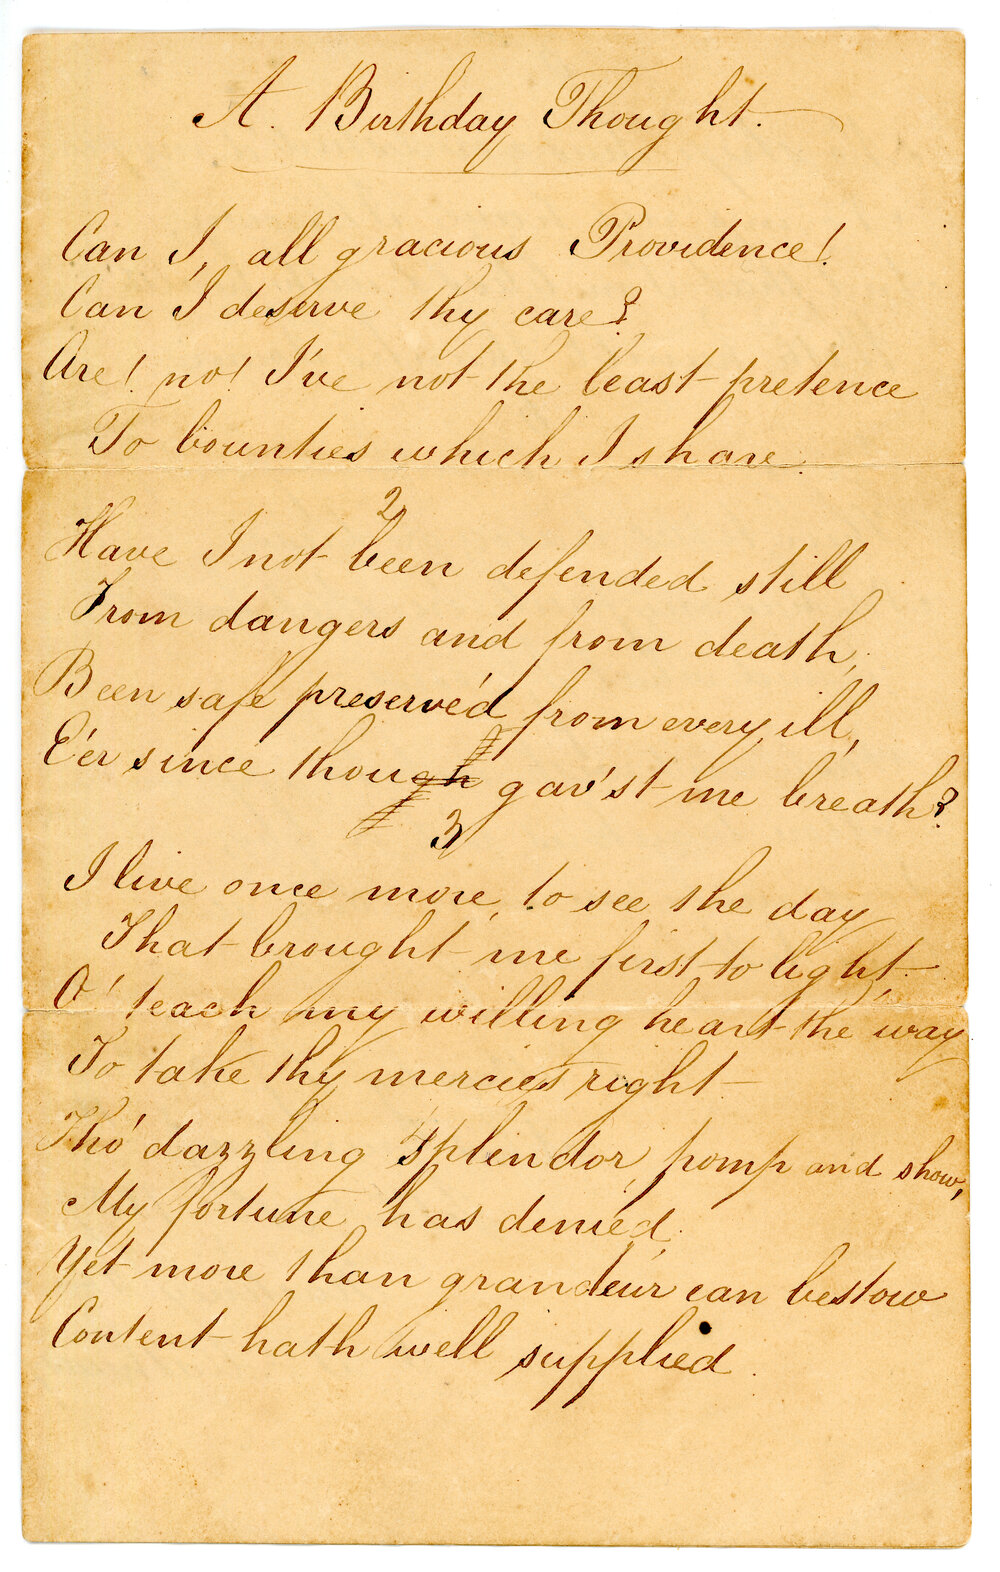 A. Birthday Thought.
Can I, all gracious Providence!
Can I deserve thy care?
Are! no! I've not the least pretence
To bounties which I share.
2
Have I not been defended still
From dangers and from death,
Been safe preserve'd from every ill,
E'er since though gav'st me breath?
3
I live once more, to see the day
That brought me first to light,
O! teach my willing heart the way
To take thy mercies right
4
Tho' dazzling splendor, pomp and show,
My fortune has denied,
Yet more than grandeur can bestow
Content hath well supplied.